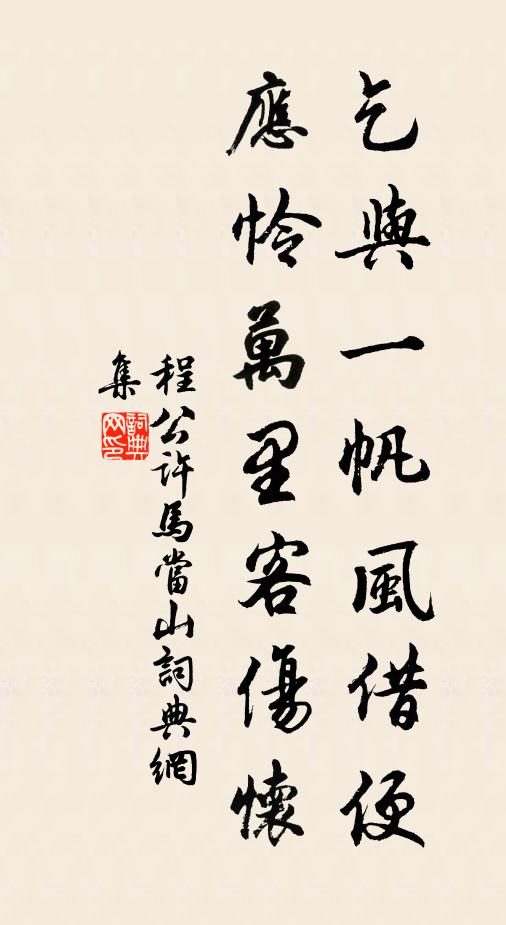 乞與一帆風借便
應憐萬里客傷懷
程公許馬當山詞典網
集
詞典
网印